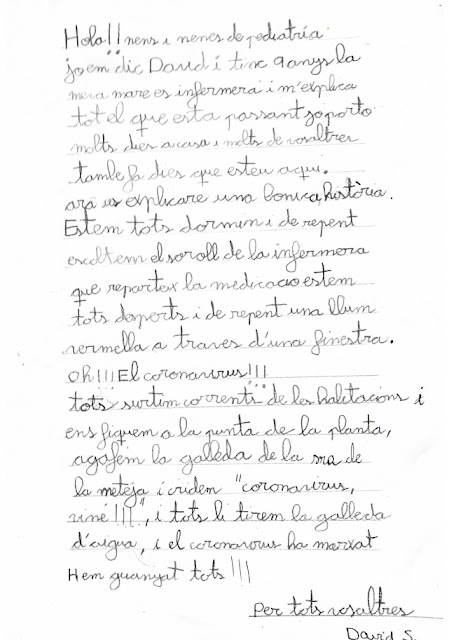 Hola!! nens i nenes de pediatría
jo em dic David i tinc 9 anys la
meva mare es infermera i m'explica
tot el que esta passant jo porto
molts dies a casa i molts de vosaltres
tambe fa dies que esteu aqui.
ara us explicare una bonica història.
Estem tots dormin i de repent
escoltem el soroll de la infermera
que reparteix la medicacio estem
tots desperts i de repent una llum
vermella a traves d'una finestra.
Oh!!! El coronavirus!!!
tots surtim corrents de les habitacions i
ens fiquem a la punta de la planta,
agafem la galleda de la sra de
la neteja i cridem "coronavirus,
viné!!!", i tots li tirem la galleda
d'aigua, i el coronavorus ha marxat
Hem guanyat tots!!!
Per tots vosaltres
David S.